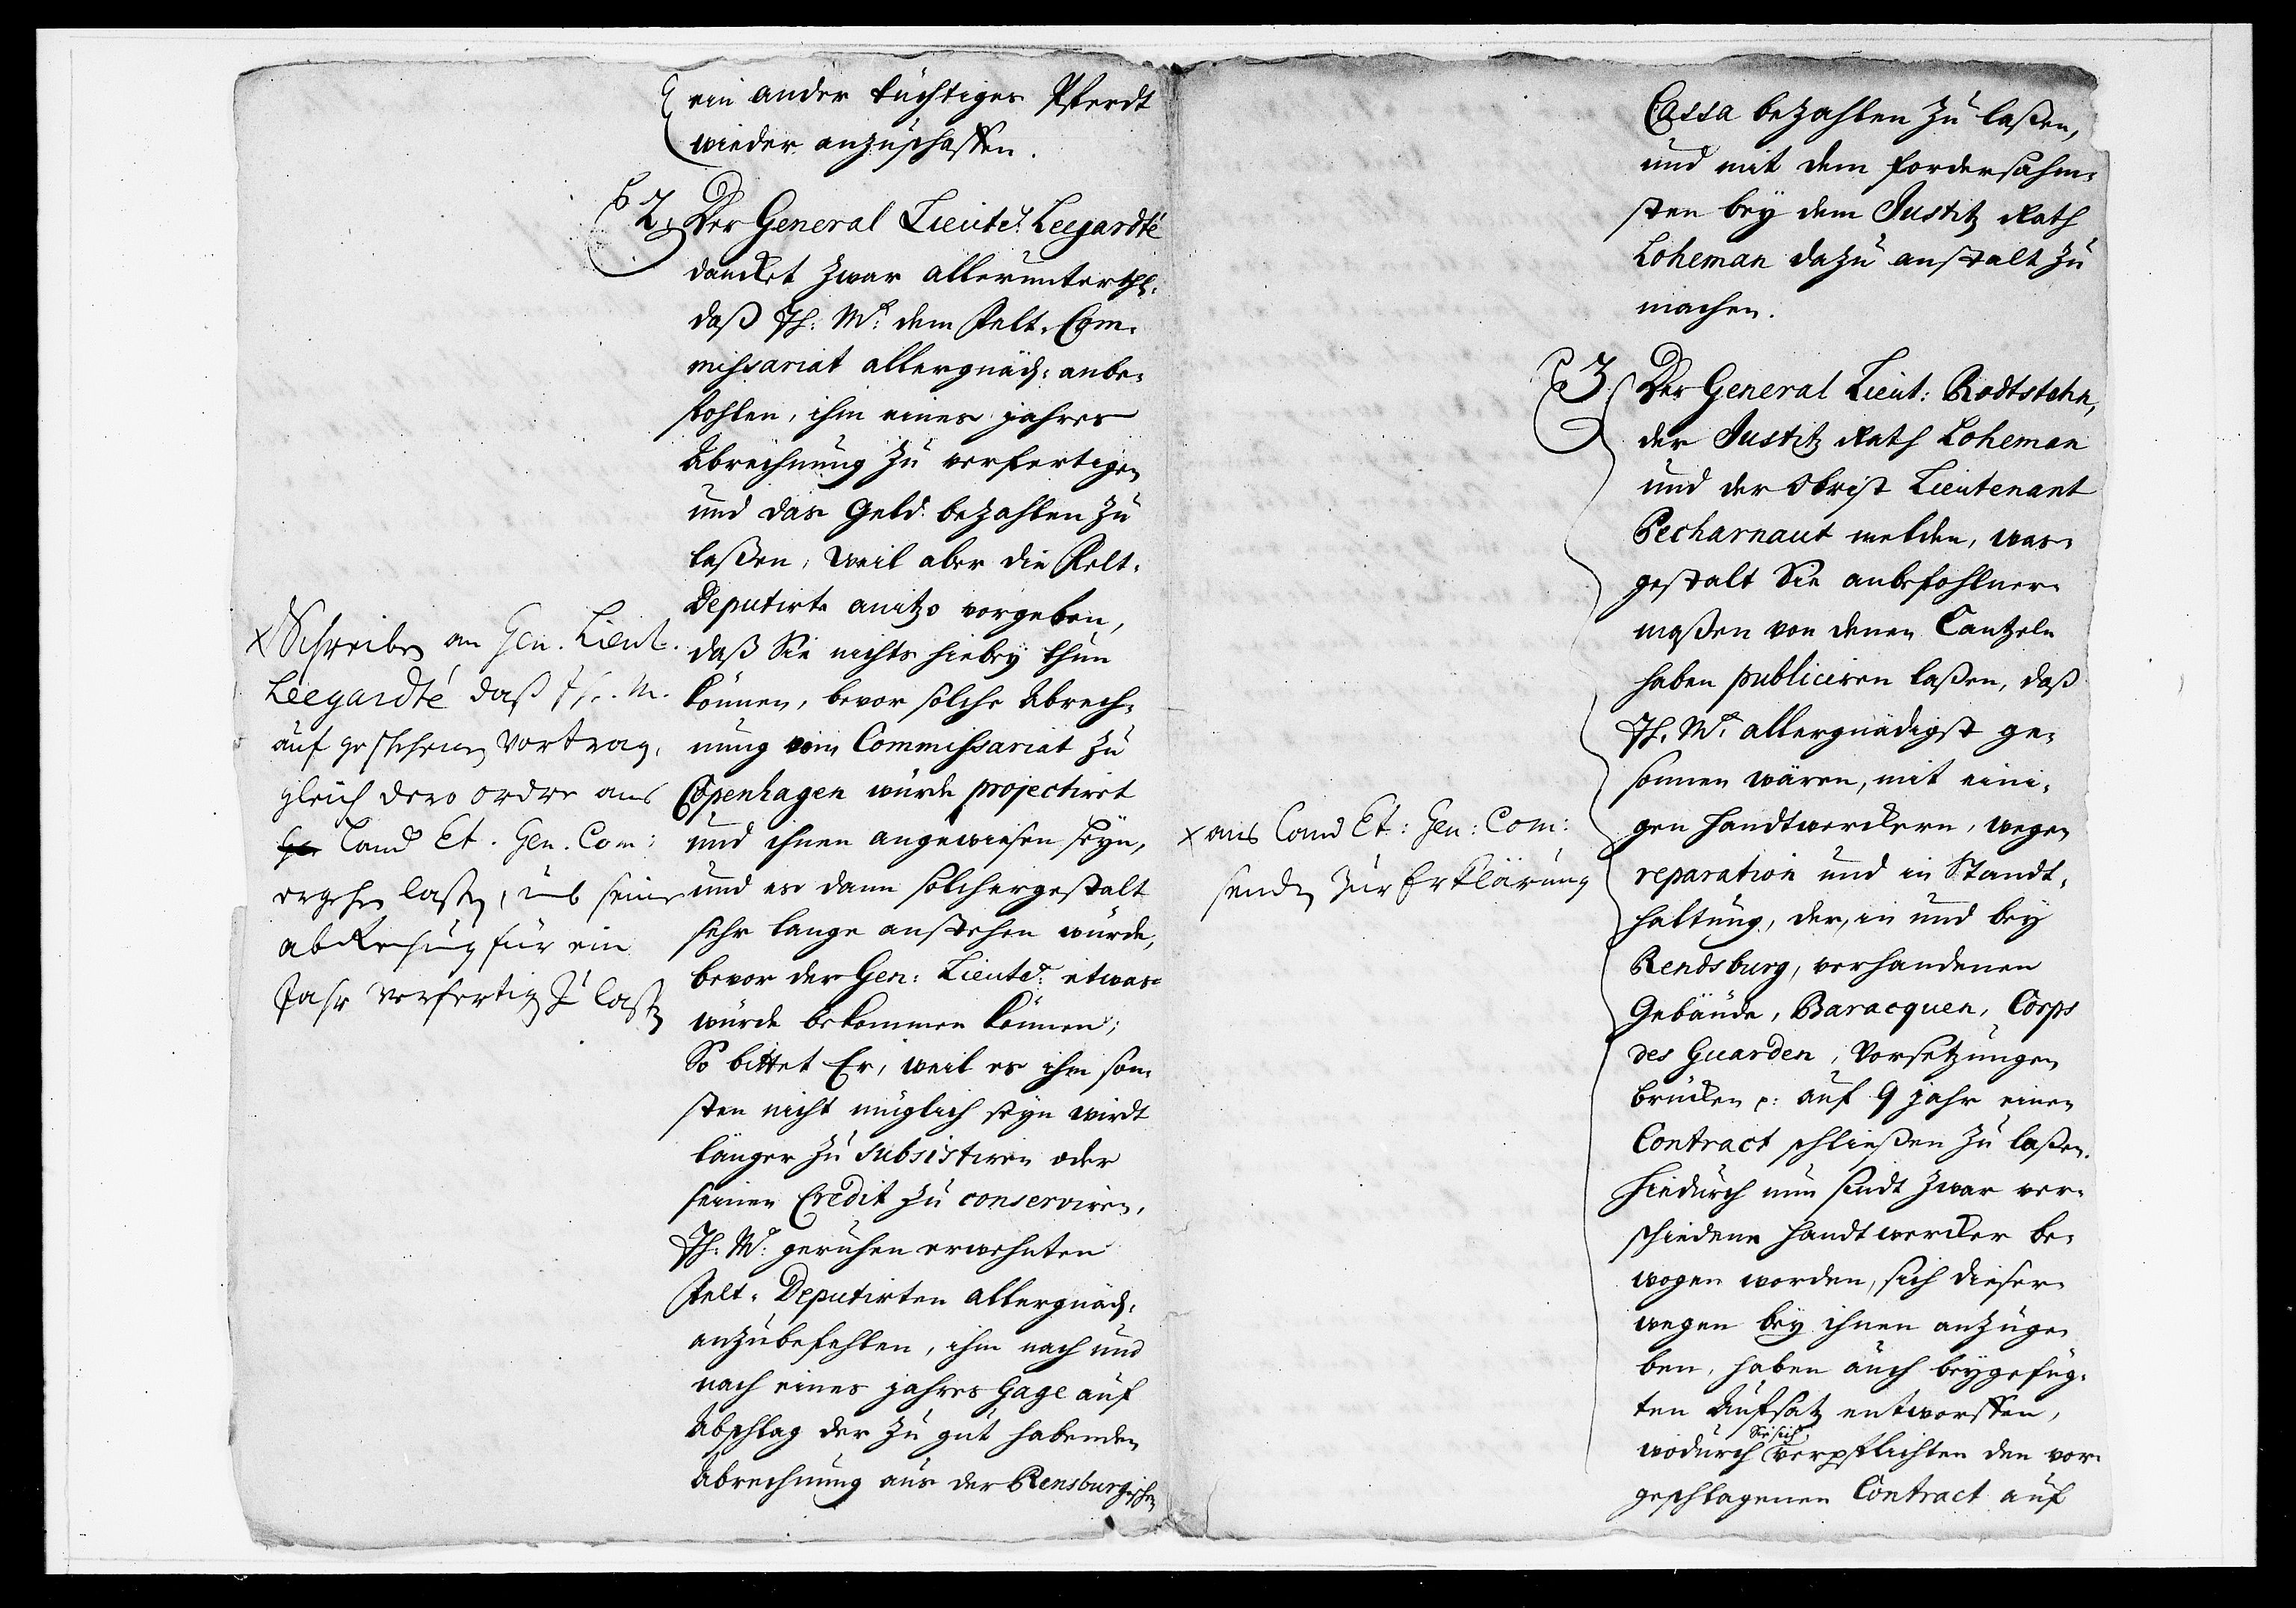 ein ander tüchtiges Pferdt
wieder anzuschaffen.
2. Der General Lieutet: Leegardté
dancket zwar allerunterth:
daß Jh: Mt: dem Felt-Com-
missariat allergnäd: anbe-
fohlen, ihm eines jahres
Abrechnung zu verfertigen
und das Geld bezahlen zu
laßen, weil aber die Felt-
Deputirte anitzo vorgeben,
daß Sie nichts hiebey thun
können, bevor solche Abrech-
nung vom Commissariat zu
Copenhagen würde projectiret
und ihnen angewiesen seyn,
und es dann solchergestalt
sehr lange anstehen würde,
bevor der Gen: Lieutet: etwas
würde bekommen können;
So bittet Er, weil es ihm son-
sten nicht müglich seyn wirdt
länger zu subsistiren oder
seinen Credit zu conserviren,
Jh: Mt: geruhen erwehnten
Felt-Deputirten allergnäd:
anzubefehlen, ihm nach und
nach eines jahres Gage auf
Abschlag der zu gut habenden
Abrechnung aus der Rensburgischen
x Schreiben an Gen. Lieut.
Leegardté daß Jh. M.
auf geschehenen Vortrag,
gleich dero ordre ans
Land Et. Gen. Com:
ergehen laßen, umb seine
abRechnung für ein
Jahr verfertigen zu laßen
Cassa bezahlen zu laßen,
und mit dem fordersahm-
sten bey dem Justitz Rath
Loheman dazu anstalt zu
machen.
3. Der General Lieut: Rodtstehn,
der Justitz Rath Loheman
und der Obrist Lieutenant
Pecharnaut melden, was-
gestalt Sie anbefohlner-
maßen von denen Cantzeln
haben publiciren laßen, daß
Jh. Mt. allergnädigst ge-
sonnen wären, mit eini-
gen Handtwerckern, wegen
reparation und in Standt-
haltung, der, in und bey
Rendsburg, verhandenen
Gebäude, Baracquen, Corps
des Guarden, Vorsetzungen
brücken p: auf 9 jahr einen
Contract schließen zu laßen.
Hiedurch nun sindt zwar ver-
schiedene Handtwercker be-
wogen worden, sich dieser-
wegen bey ihnen anzuge-
ben, haben auch beygefüg-
ten Aufsatz entworffen,
wodurch Sie sich verpflichten den vor-
geschlagenen Contract auf
x ans Land Et: Gen: Com:
senden zur Erklärung